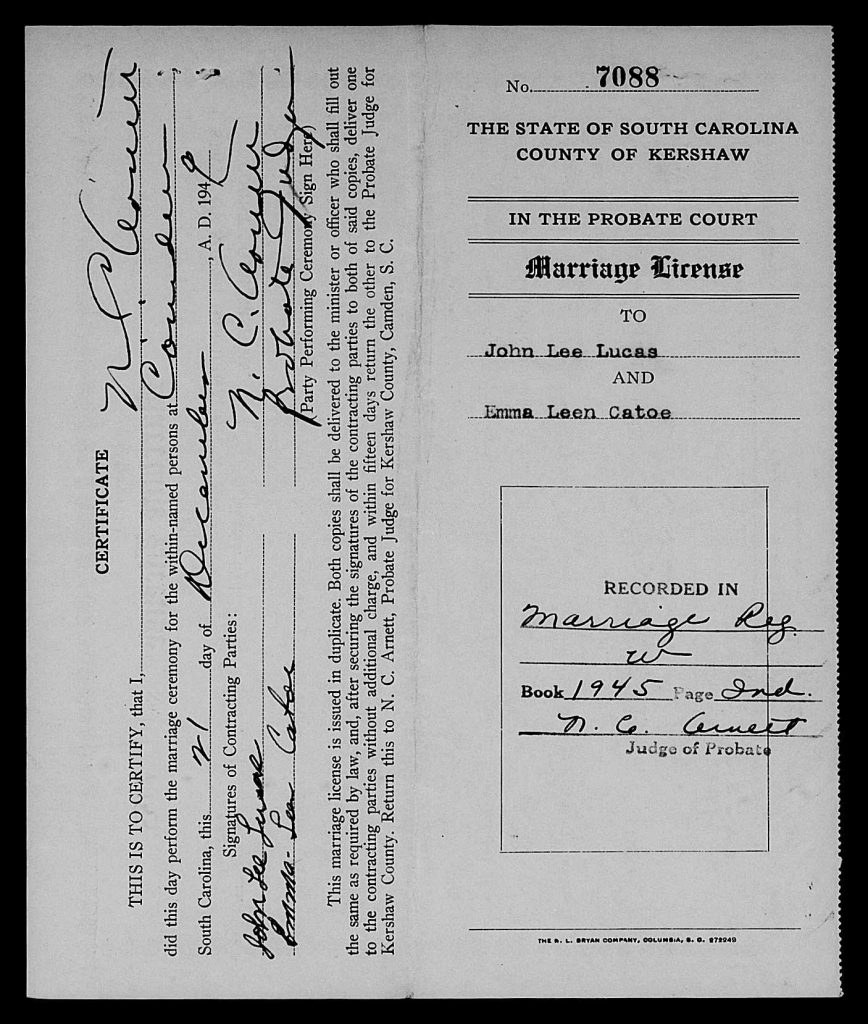 CERTIFICATE
THIS IS TO CERTIFY, that I, N. C. Arnett
did this day perform the marriage ceremony for the within-named persons at Camden
South Carolina, this 21 day of December, A. D. 1949
Signatures of Contracting Parties:
John Lee Lucas N. C. Arnett
Emma Leen Catoe Probate Judge
(Party Performing Ceremony Sign Here)
This marriage license is issued in duplicate. Both copies shall be delivered to the minister or officer who shall fill out
the same as required by law, and, after securing the signatures of the contracting parties to both of said copies, deliver one
to the contracting parties without additional charge, and within fifteen days return the other to the Probate Judge for
Kershaw County. Return this to N. C. Arnett, Probate Judge for Kershaw County, Camden, S. C.
No. 7088
THE STATE OF SOUTH CAROLINA
COUNTY OF KERSHAW
IN THE PROBATE COURT
Marriage License
TO
John Lee Lucas
AND
Emma Leen Catoe
RECORDED IN
Marriage Reg.
W
Book 1945 Page Ind.
N. C. Arnett
Judge of Probate
THE R. L. BRYAN COMPANY, COLUMBIA, S. C. 272949